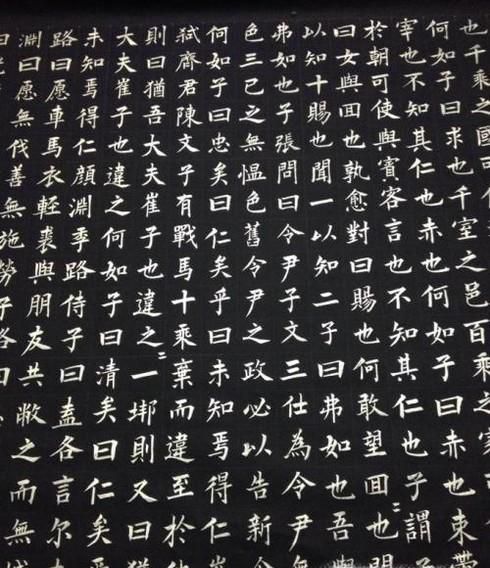 也千乘之國可
何如子曰求也千室之邑百乘之
宰也不知其仁也赤也何如子曰赤也束帶
於朝可使與賓客言也不知其仁也子謂
曰女與回也孰愈對曰賜也何敢望回〻也聞
以知十賜也聞一以知二子曰弗如也吾與
弗如也子張問曰令尹子文三仕為令尹無
色三已之無慍色舊令尹之政必以告新令
何如子曰忠矣曰仁矣乎曰未知焉得仁
弒齊君陳文子有戰馬十乘棄而違至於
則曰猶吾大夫崔子也違之〻一邦則又曰猶
大夫崔子也違之何如子曰清矣曰仁矣
未知焉得仁顏淵季路侍子曰盍各言尔
路曰愿車馬衣輕裘與朋友共敝之而無
淵曰愿無伐善無施勞子路曰